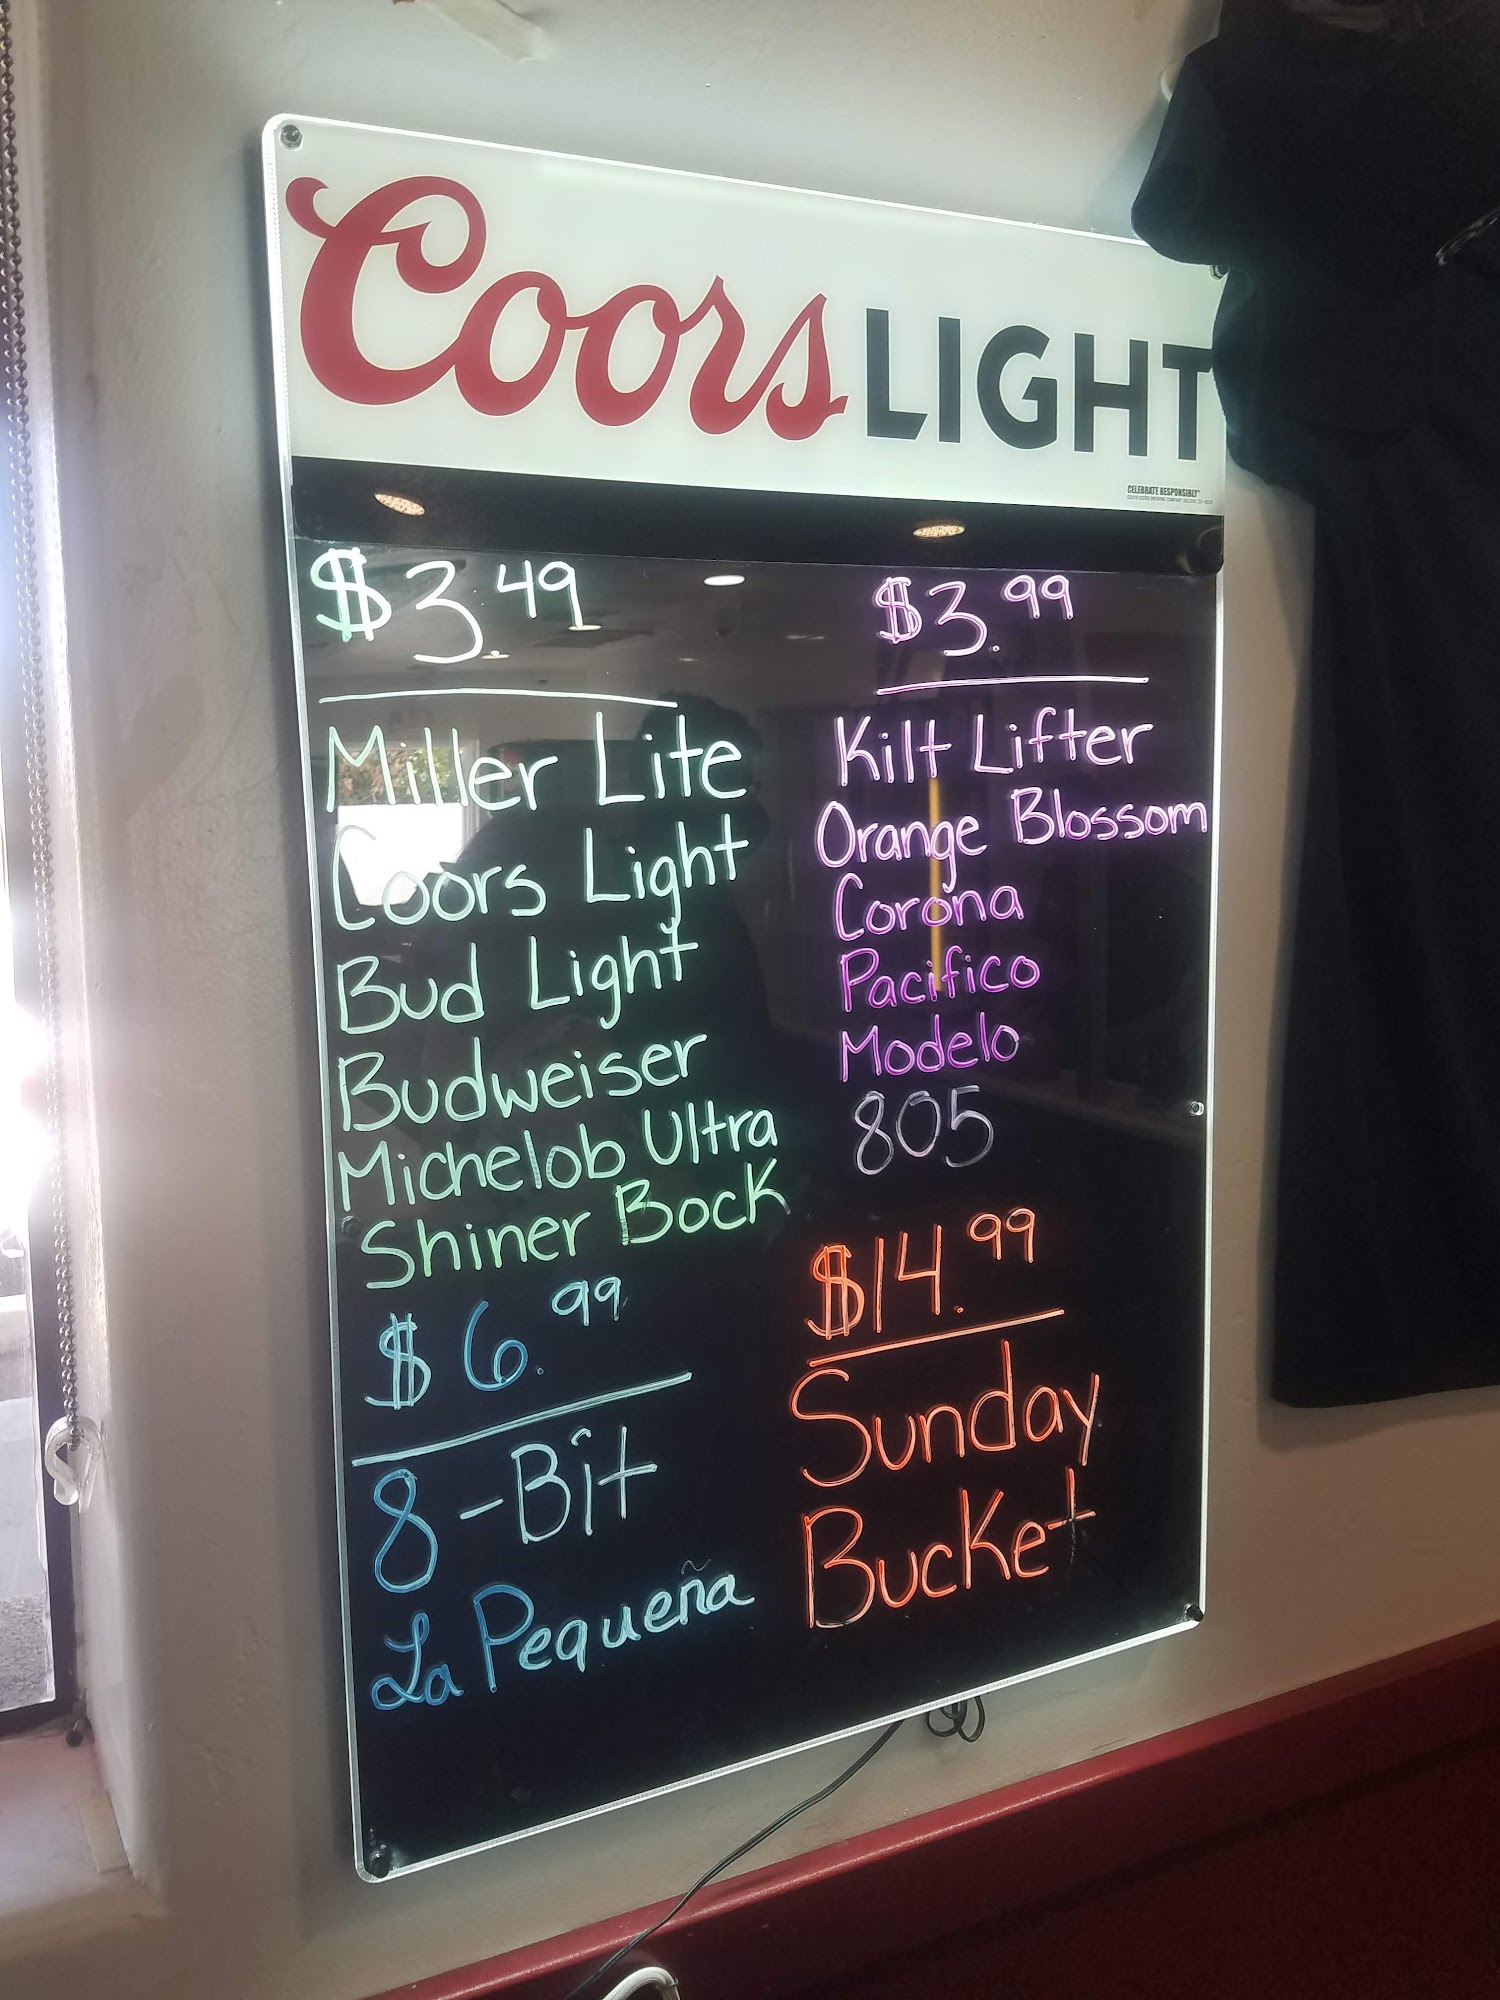 Coors LIGHT
CELEBRATE RESPONSIBLY
$3.49
Miller Lite
Coors Light
Bud Light
Budweiser
Michelob Ultra
Shiner Bock
$6.99
8-Bit
La Pequeña
$3.99
Kilt Lifter
Orange Blossom
Corona
Pacifico
Modelo
805
$14.99
Sunday
Bucket